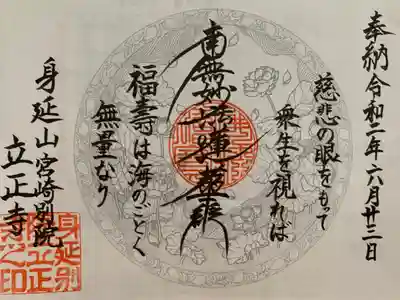 奉納 令和二年六月廿二日
慈悲の眼をもって
衆生を視れば
南無妙法蓮華経
福壽は海のごとく
無量なり
身延山宮崎別院
立正寺
身延別
院立正
寺之印